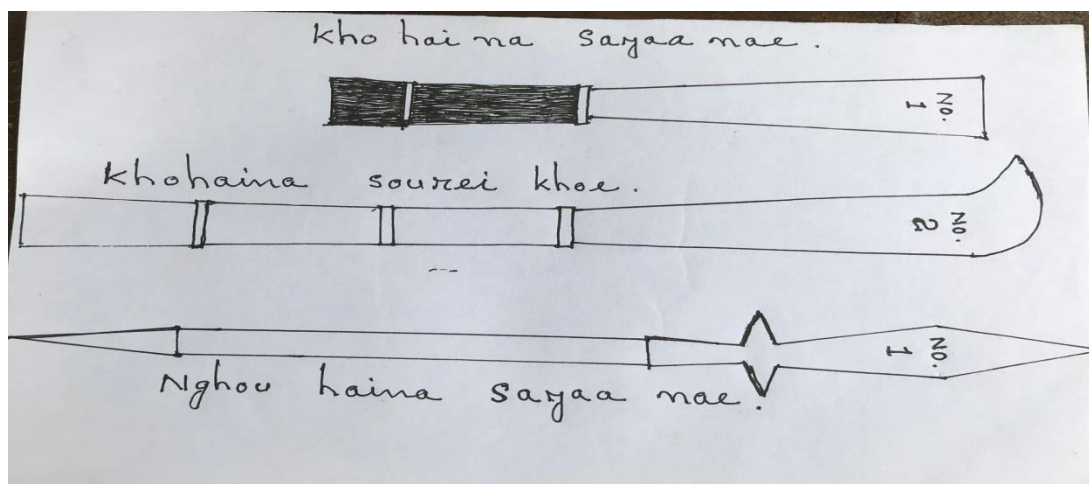 kho hai na sayaa nae.
NO. 1
khohaina sourei khoe.
NO. 2
NO. 1
Nghou haina sayaa nae.